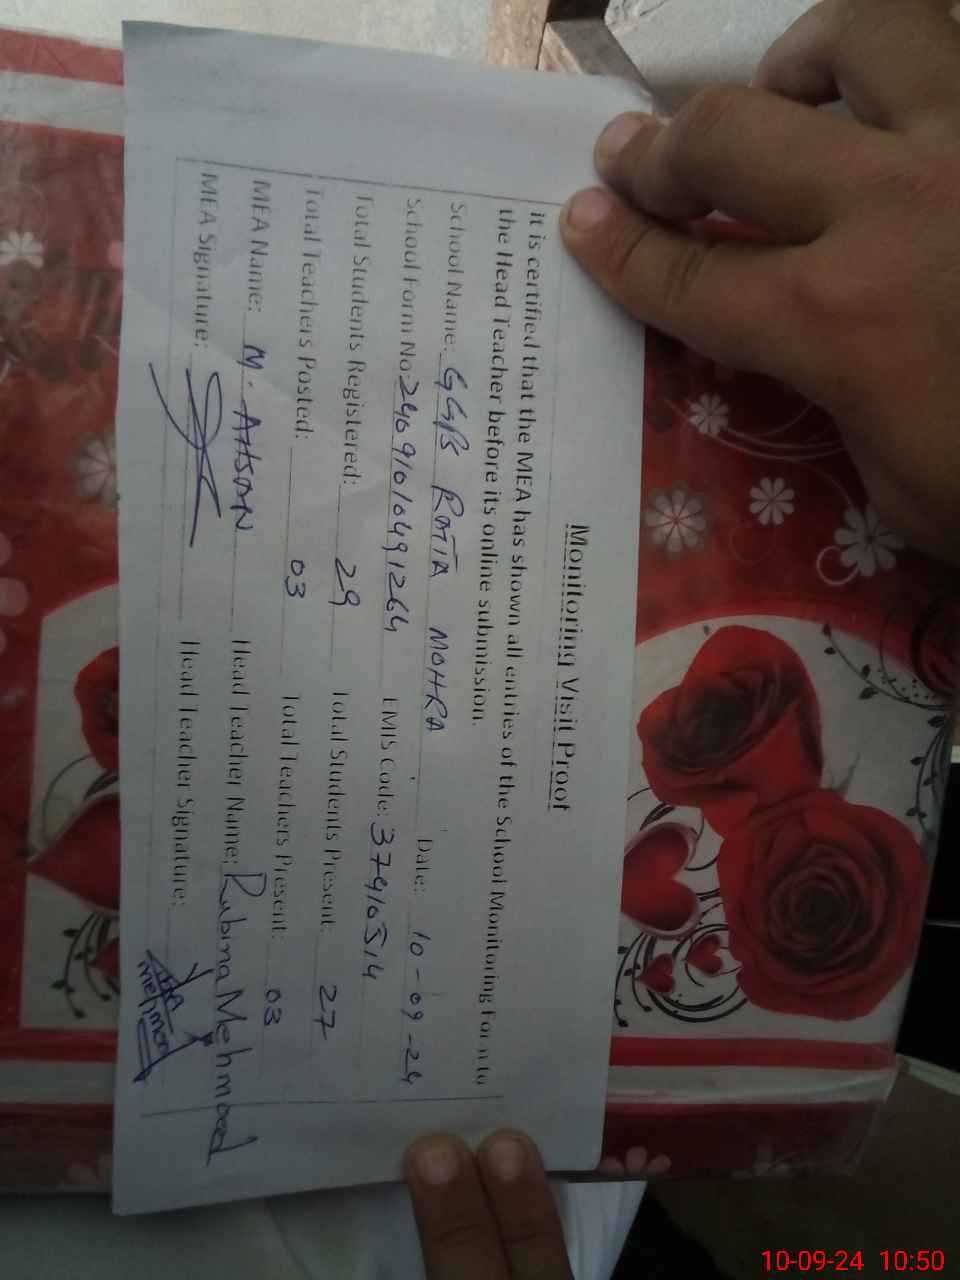 Monitoring Visit Proof
it is certified that the MEA has shown all entries of the School Monitoring Form to
the Head Teacher before its online submission.
School Name: GGPS RATTA MOHRA Date: 10-09-24
School Form No: 24091010491264 EMIS Code: 37410514
Total Students Registered: 29 Total Students Present: 27
Total Teachers Posted: 03 Total Teachers Present: 03
MEA Name: M. AHSAN Head Teacher Name: Rubina Mehmood
MEA Signature: Head Teacher Signature:
10-09-24 10:50